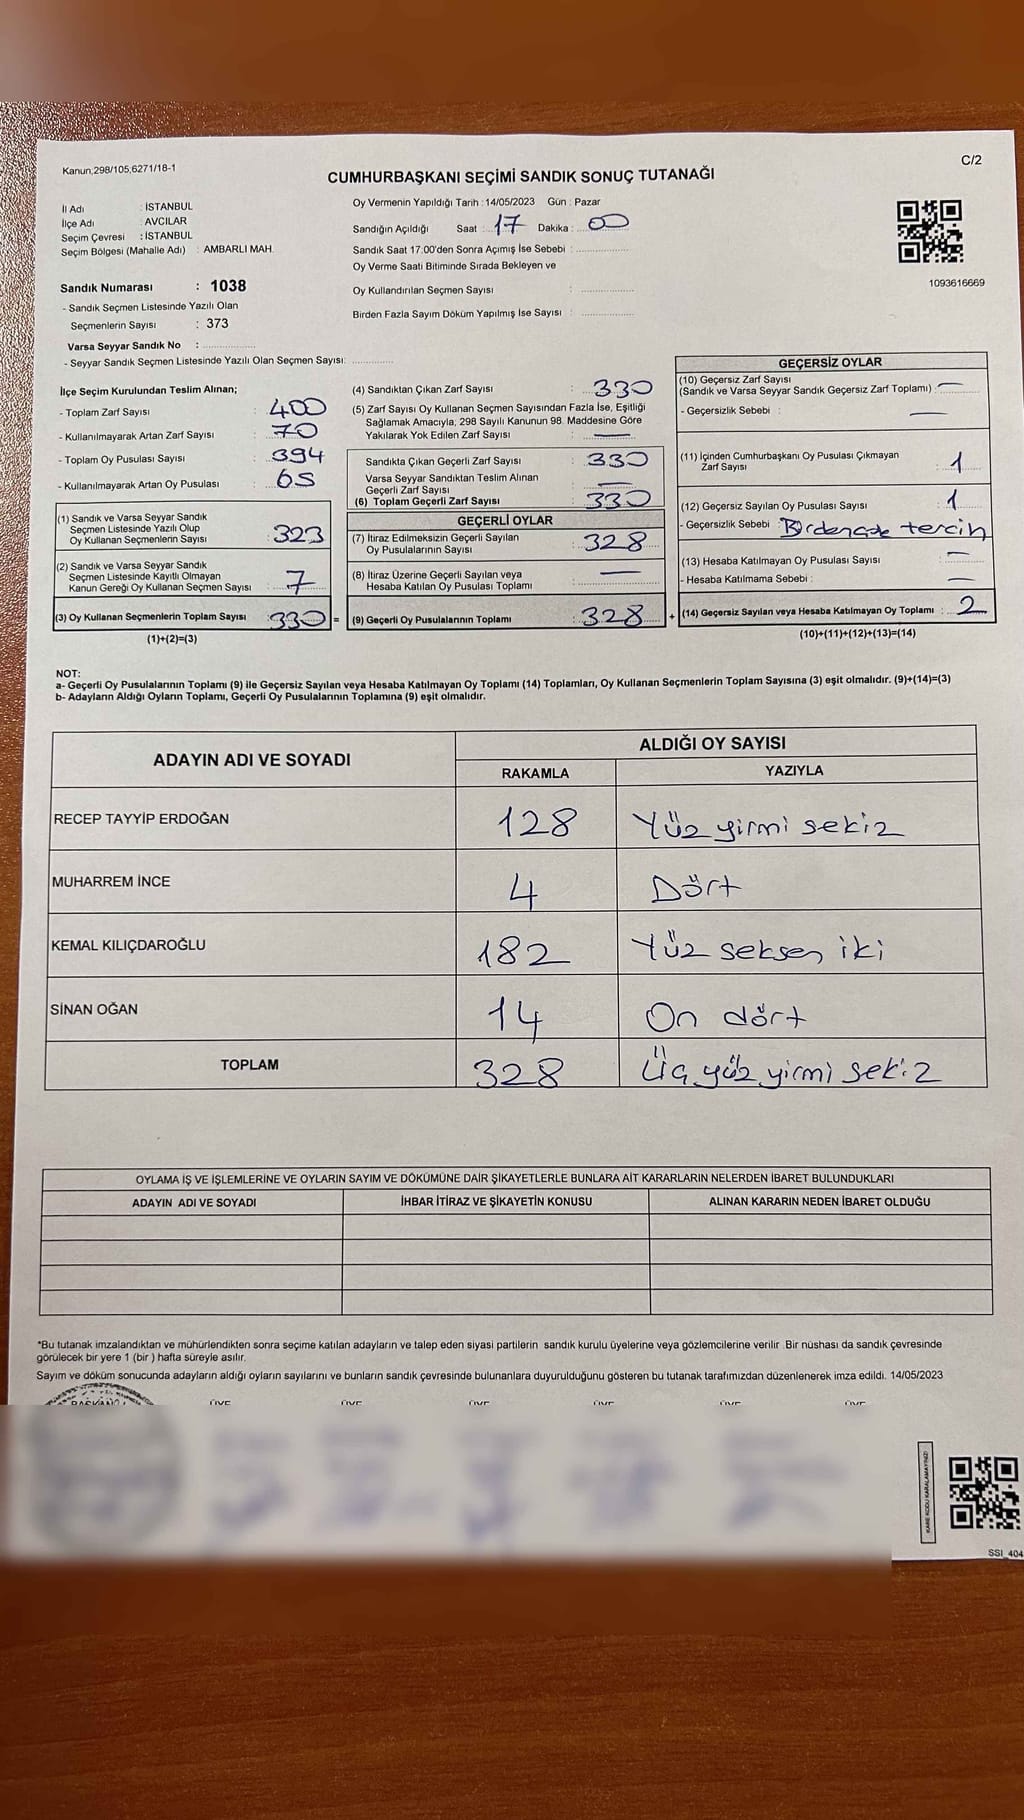 Kanun;298/105;6271/18-1
C/2
CUMHURBAŞKANI SEÇİMİ SANDIK SONUÇ TUTANAĞI
İl Adı : İSTANBUL
İlçe Adı : AVCILAR
Seçim Çevresi : İSTANBUL
Seçim Bölgesi (Mahalle Adı) : AMBARLI MAH.
Sandık Numarası : 1038
- Sandık Seçmen Listesinde Yazılı Olan
Seçmenlerin Sayısı : 373
Varsa Seyyar Sandık No :
- Seyyar Sandık Seçmen Listesinde Yazılı Olan Seçmen Sayısı:
Oy Vermenin Yapıldığı Tarih : 14/05/2023 Gün : Pazar
Sandığın Açıldığı Saat : 17 Dakika : 00
Sandık Saat 17.00'den Sonra Açımış İse Sebebi :
Oy Verme Saati Bitiminde Sırada Bekleyen ve
Oy Kullandırılan Seçmen Sayısı :
Birden Fazla Sayım Döküm Yapılmış İse Sayısı :
1093616669
İlçe Seçim Kurulundan Teslim Alınan;
- Toplam Zarf Sayısı : 400
- Kullanılmayarak Artan Zarf Sayısı : 70
- Toplam Oy Pusulası Sayısı : 394
- Kullanılmayarak Artan Oy Pusulası : 65
(1) Sandık ve Varsa Seyyar Sandık
Seçmen Listesinde Yazılı Olup
Oy Kullanan Seçmenlerin Sayısı : 323
(2) Sandık ve Varsa Seyyar Sandık
Seçmen Listesinde Kayıtlı Olmayan
Kanun Gereği Oy Kullanan Seçmen Sayısı : 7
(3) Oy Kullanan Seçmenlerin Toplam Sayısı : 330 =
(1)+(2)=(3)
(4) Sandıktan Çıkan Zarf Sayısı : 330
(5) Zarf Sayısı Oy Kullanan Seçmen Sayısından Fazla İse, Eşitliği
Sağlamak Amacıyla; 298 Sayılı Kanunun 98. Maddesine Göre
Yakılarak Yok Edilen Zarf Sayısı : —
Sandıkta Çıkan Geçerli Zarf Sayısı : 330
Varsa Seyyar Sandıktan Teslim Alınan
Geçerli Zarf Sayısı : —
(6) Toplam Geçerli Zarf Sayısı : 330
GEÇERLİ OYLAR
(7) İtiraz Edilmeksizin Geçerli Sayılan
Oy Pusulalarının Sayısı : 328
(8) İtiraz Üzerine Geçerli Sayılan veya
Hesaba Katılan Oy Pusulası Toplamı : —
(9) Geçerli Oy Pusulalarının Toplamı : 328 +
GEÇERSİZ OYLAR
(10) Geçersiz Zarf Sayısı
(Sandık ve Varsa Seyyar Sandık Geçersiz Zarf Toplamı) : —
- Geçersizlik Sebebi : —
(11) İçinden Cumhurbaşkanı Oy Pusulası Çıkmayan
Zarf Sayısı : 1
(12) Geçersiz Sayılan Oy Pusulası Sayısı : 1
- Geçersizlik Sebebi : tercih
(13) Hesaba Katılmayan Oy Pusulası Sayısı : —
- Hesaba Katılmama Sebebi : —
(14) Geçersiz Sayılan veya Hesaba Katılmayan Oy Toplamı : 2
(10)+(11)+(12)+(13)=(14)
NOT:
a- Geçerli Oy Pusulalarının Toplamı (9) ile Geçersiz Sayılan veya Hesaba Katılmayan Oy Toplamı (14) Toplamları, Oy Kullanan Seçmenlerin Toplam Sayısına (3) eşit olmalıdır. (9)+(14)=(3)
b- Adayların Aldığı Oyların Toplamı, Geçerli Oy Pusulalarının Toplamına (9) eşit olmalıdır.
ADAYIN ADI VE SOYADI ALDIĞI OY SAYISI
RAKAMLA YAZIYLA
RECEP TAYYİP ERDOĞAN 128 Yüz yirmi sekiz
MUHARREM İNCE 4 Dört
KEMAL KILIÇDAROĞLU 182 Yüz seksen iki
SİNAN OĞAN 14 On dört
TOPLAM 328 Üç yüz yirmi sekiz
OYLAMA İŞ VE İŞLEMLERİNE VE OYLARIN SAYIM VE DÖKÜMÜNE DAİR ŞİKAYETLERLE BUNLARA AİT KARARLARIN NELERDEN İBARET BULUNDUKLARI
ADAYIN ADI VE SOYADI İHBAR İTİRAZ VE ŞİKAYETİN KONUSU ALINAN KARARIN NEDEN İBARET OLDUĞU
*Bu tutanak imzalandıktan ve mühürlendikten sonra seçime katılan adayların ve talep eden siyasi partilerin sandık kurulu üyelerine veya gözlemcilerine verilir .Bir nüshası da sandık çevresinde
görülecek bir yere 1 (bir ) hafta süreyle asılır.
Sayım ve döküm sonucunda adayların aldığı oyların sayılarını ve bunların sandık çevresinde bulunanlara duyurulduğunu gösteren bu tutanak tarafımızdan düzenlenerek imza edildi. 14/05/2023
KARE KODU KARALAMAYINIZ!
SSI_404